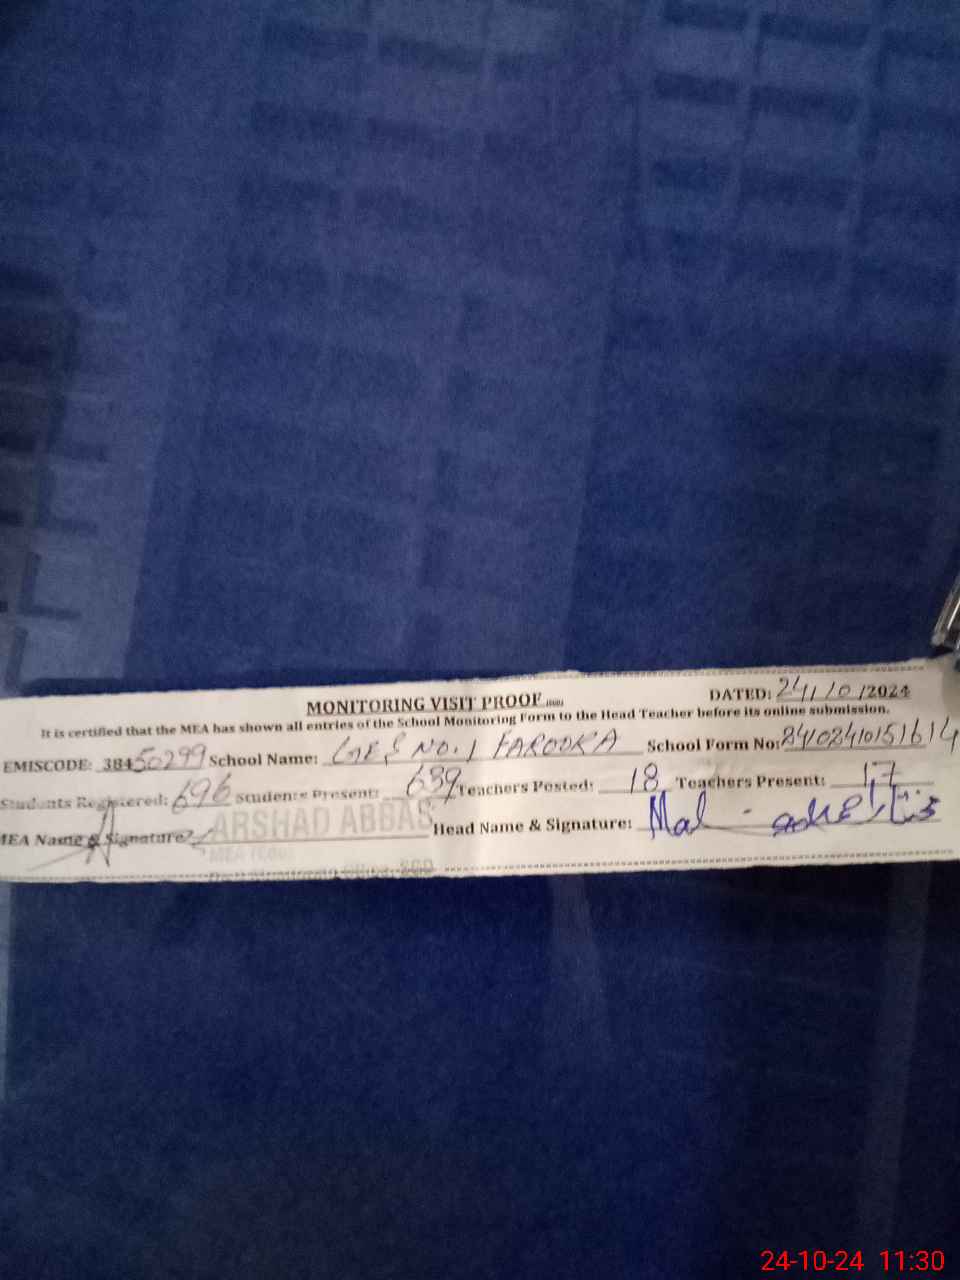 MONITORING VISIT PROOF
DATED: 24/10/2024
It is certified that the MEA has shown all entries of the School Monitoring Form to the Head Teacher before its online submission.
EMISCODE: 38450299 School Name: GES NO. 1 FAROOKA School Form No: 2410240151614
Students Registered: 696 Students Present: 639 Teachers Posted: 18 Teachers Present: 17
MEA Name & Signature: ARSHAD ABBAS Head Name & Signature:
24-10-24 11:30